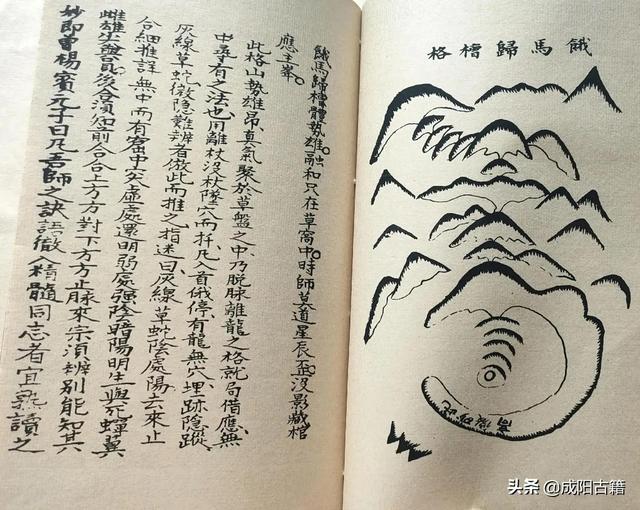 餓馬歸槽格
餓馬歸槽體勢雄融和只在草窩中時師莫道星辰歪沒影藏棺
應主峯
此格山勢雄昂真氣聚於草盤之中乃脫脉離龍之格就局借應無
中尋有之法也用離杖沒杖墜穴而扦凡入首俄停有龍無穴埋跡隱蹤
灰線草蛇微隱難辨者倣此而推之指迷曰灰線草蛇陰處陽去來止
合細推詳無中而有窩中突虛處還明弱處強陰暗陽明生與死蟬翼
雌雄生盤員後合須知前合合上方方對下方方止脉來宗須辨別能知其六
妙即曾楊賓元子曰凡吾師之訣語徹入精髓同志者宜熟讀之
头条 @成阳古籍